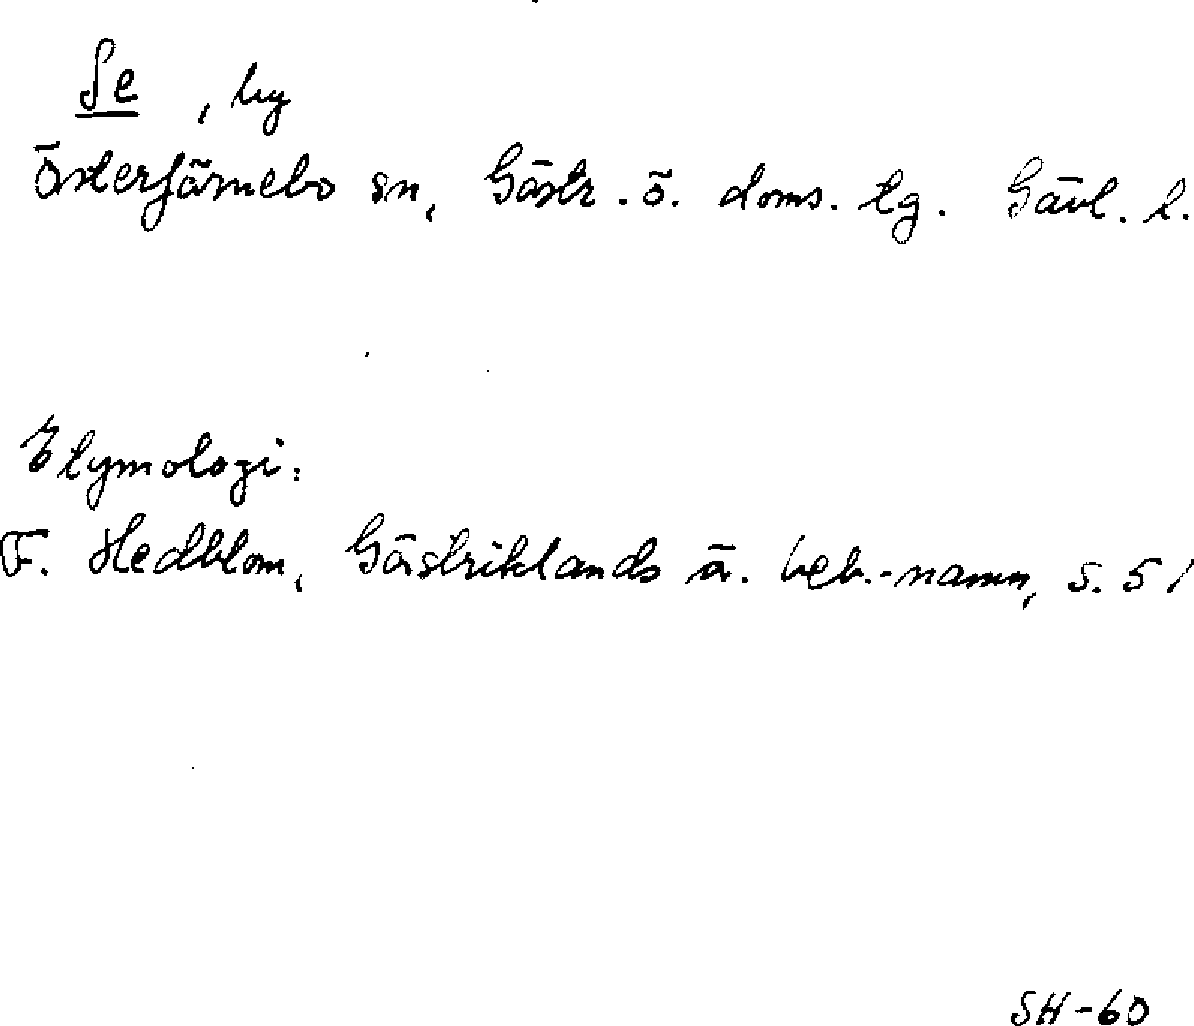 Se, by
Österfärnebo sn, Gästr. ö. doms. tg. Gävl. l.
Etymologi:
F. Hedblom, Gästriklands ä. beb.-namn, s. 51
SH-60